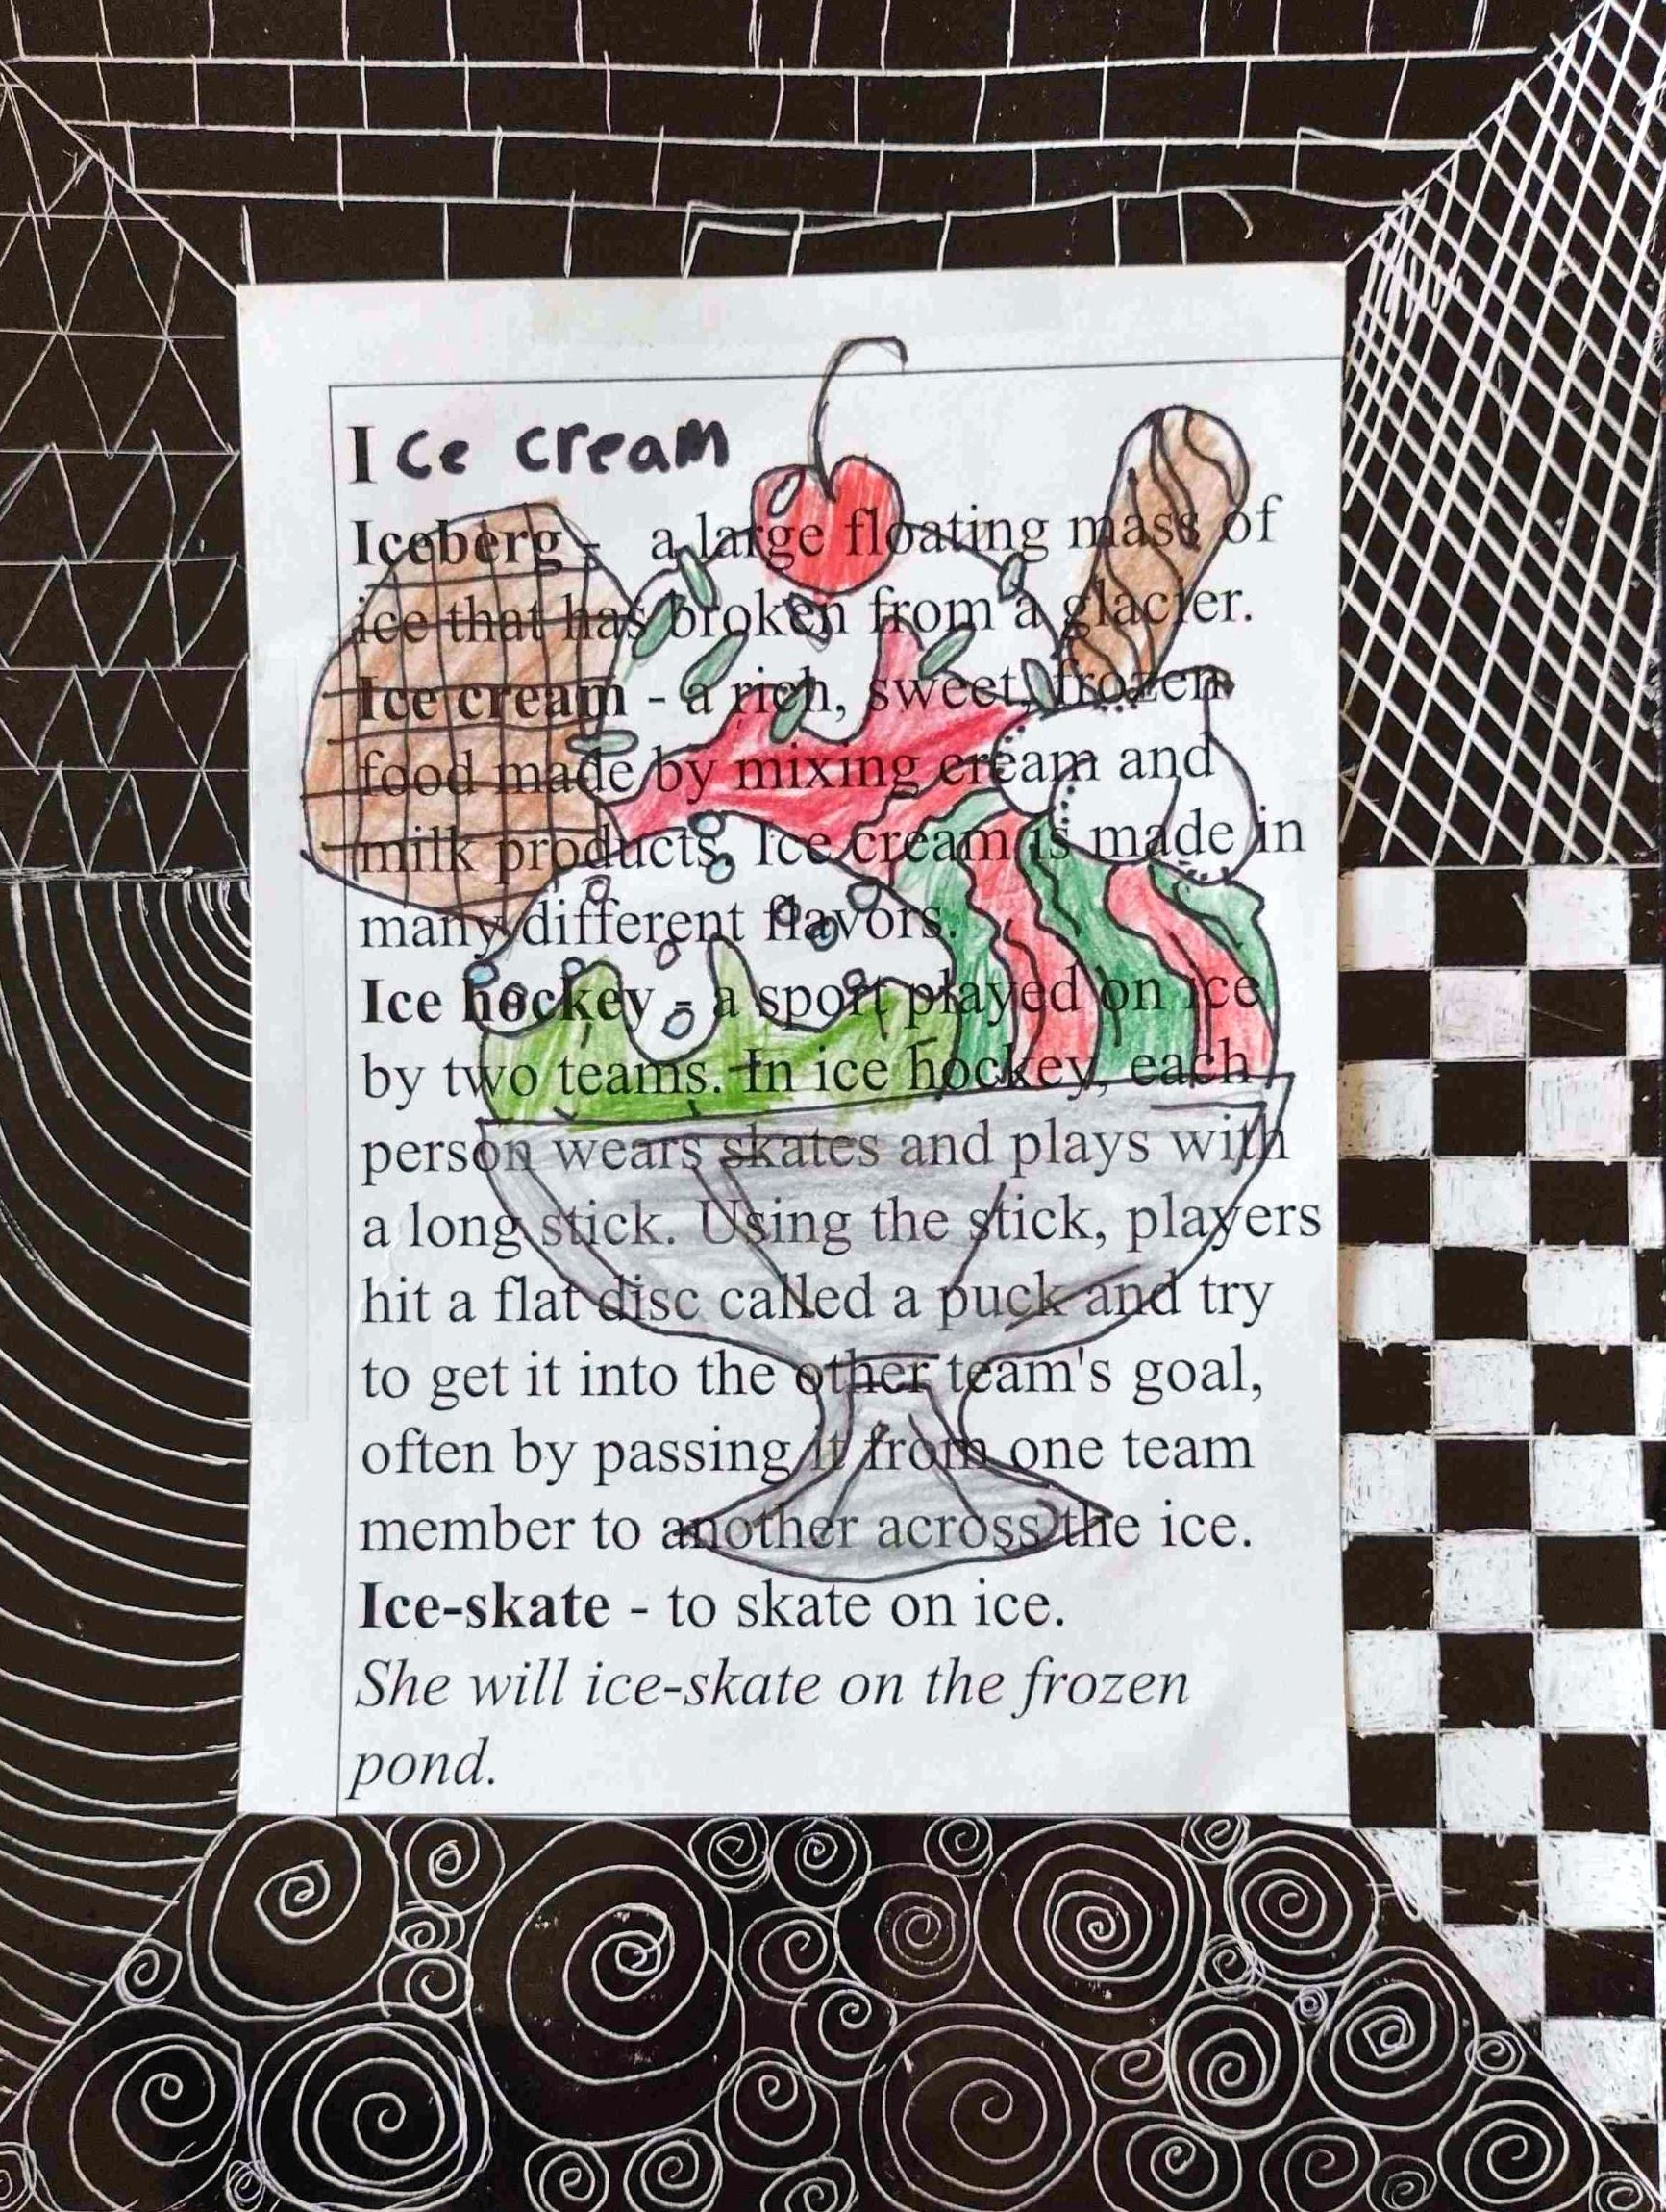 I ce cream
Iceberg - a large floating mass of
ice that has broken from a glacier.
Ice cream - a rich, sweet, frozen
food made by mixing cream and
milk products. Ice cream is made in
many different flavors.
Ice hockey - a sport played on ice
by two teams. In ice hockey, each
person wears skates and plays with
a long stick. Using the stick, players
hit a flat disc called a puck and try
to get it into the other team's goal,
often by passing it from one team
member to another across the ice.
Ice-skate - to skate on ice.
She will ice-skate on the frozen
pond.